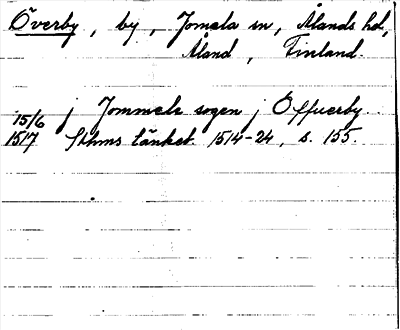 Överby, by, Jomala sn, Ålands hd,
Åland, Finland.
15/6 j Jommele sogen j Öffuerby
1517 Sthms tänkeb. 1514-24, s. 155.